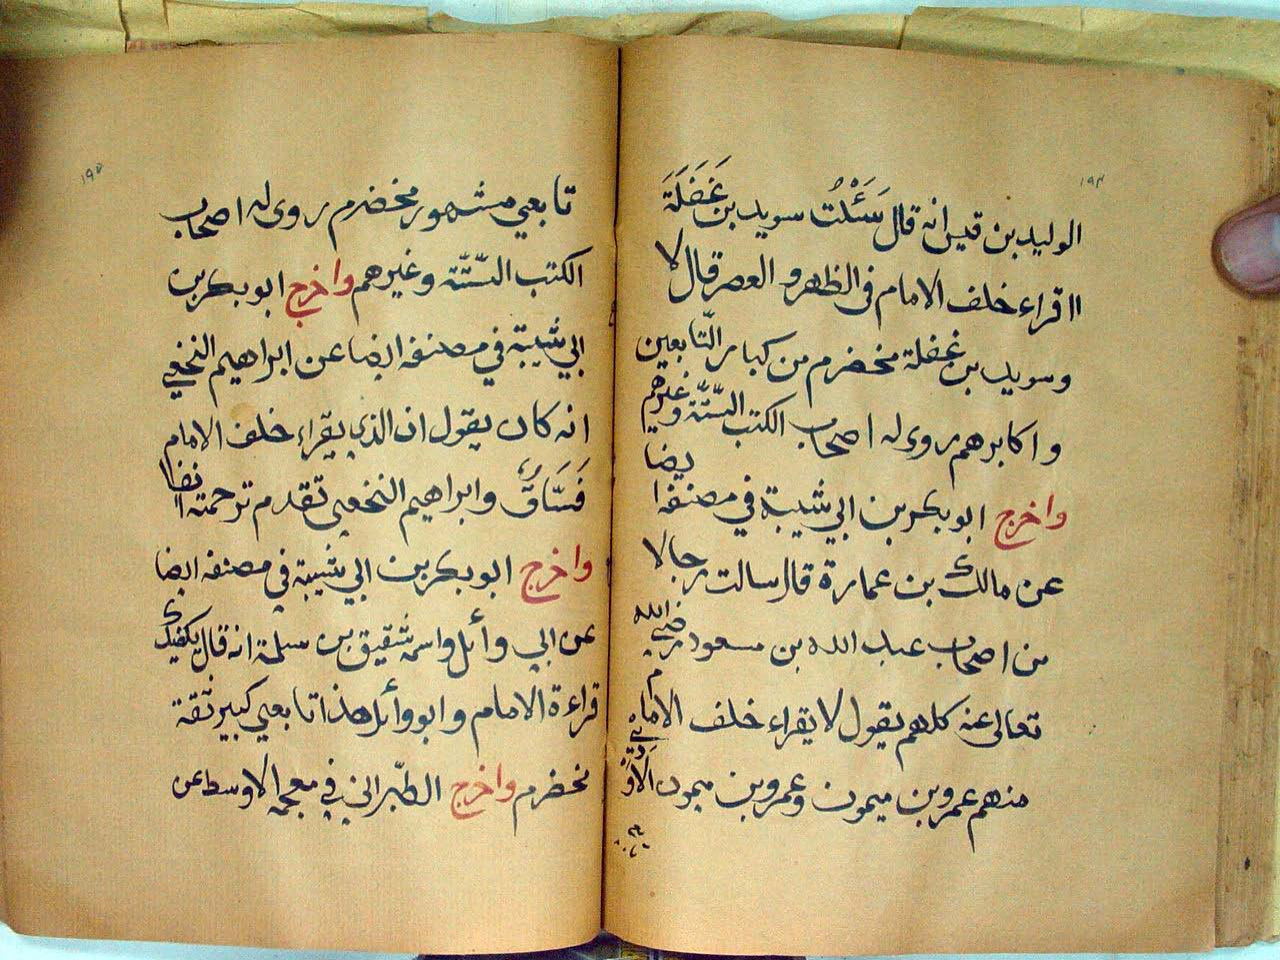 ١٩٣
الوليد بن قيس انه قال سَئَلْتُ سويد بن غَفَلَةَ
ااقراء خلف الامام فى الظهر و العصر قال لا
وسويد بن غفلة مخضرم من كبار التّابعين
و اكابرهم روى له اصحاب الكتب السّتّة وغيرهم
واخرج ابو بكر بن ابي شيبة في مصنفه ايضا
عن مالك بن عمارة قال سالت رجالا
من اصحاب عبد الله بن مسعود رضي الله
تعالى عنه كلهم يقول لا يقراء خلف الامام
منهم عمرو بن ميمون وعمرو بن ميمون الاَوْدِي
تابعي مشهور مخضرم روى له اصحاب
الكتب السّتّة وغيرهم واخرج ابو بكر بن
ابي شيبة في مصنفه ايضا عن ابراهيم النخعي
انه كان يقول ان الذي يقراء خلف الامام
فَسَّاقٌ وابراهيم النخعي تقدم ترحمته ايضا
واخرج ابو بكر بن ابي شيبة في مصنفه ايضا
عن ابي وأيل واسمه شقيق بن سلمة انه قال يكفيك
قراءة الامام وابو وأيل هذا تابعي كبير ثقة
مخضرم واخرج الطّبراني في معجمه الاوسط عن